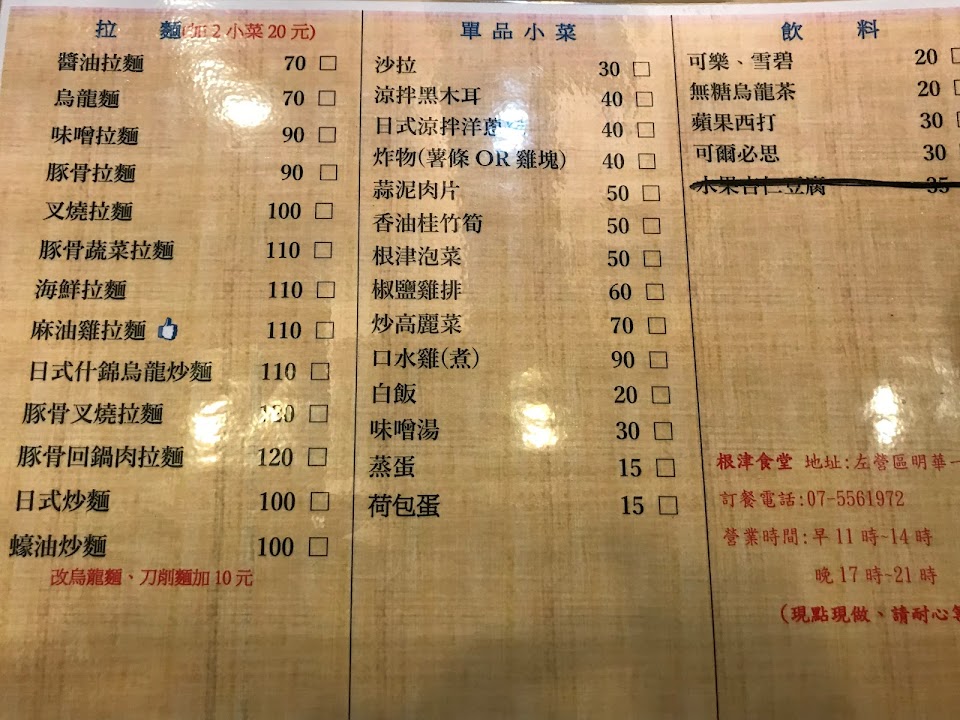 拉 麵(加 2 小菜 20 元)
醬油拉麵 70 □
烏龍麵 70 □
味噌拉麵 90 □
豚骨拉麵 90 □
叉燒拉麵 100 □
豚骨蔬菜拉麵 110 □
海鮮拉麵 110 □
麻油雞拉麵 110 □
日式什錦烏龍炒麵 110 □
豚骨叉燒拉麵 □
豚骨回鍋肉拉麵 120 □
日式炒麵 100 □
蠔油炒麵 100 □
改烏龍麵、刀削麵加 10 元
單品小菜
沙拉 30 □
涼拌黑木耳 40 □
日式涼拌洋蔥 40 □
炸物(薯條 OR 雞塊) 40 □
蒜泥肉片 50 □
香油桂竹筍 50 □
根津泡菜 50 □
椒鹽雞排 60 □
炒高麗菜 70 □
口水雞(煮) 90 □
白飯 20 □
味噌湯 30 □
蒸蛋 15 □
荷包蛋 15 □
飲 料
可樂、雪碧 20
無糖烏龍茶 20
蘋果西打 30
可爾必思 30
水果杏仁豆腐 35
根津食堂 地址:左營區明華一
訂餐電話:07-5561972
營業時間:早 11 時~14 時
晚 17 時~21 時
(現點現做、請耐心等